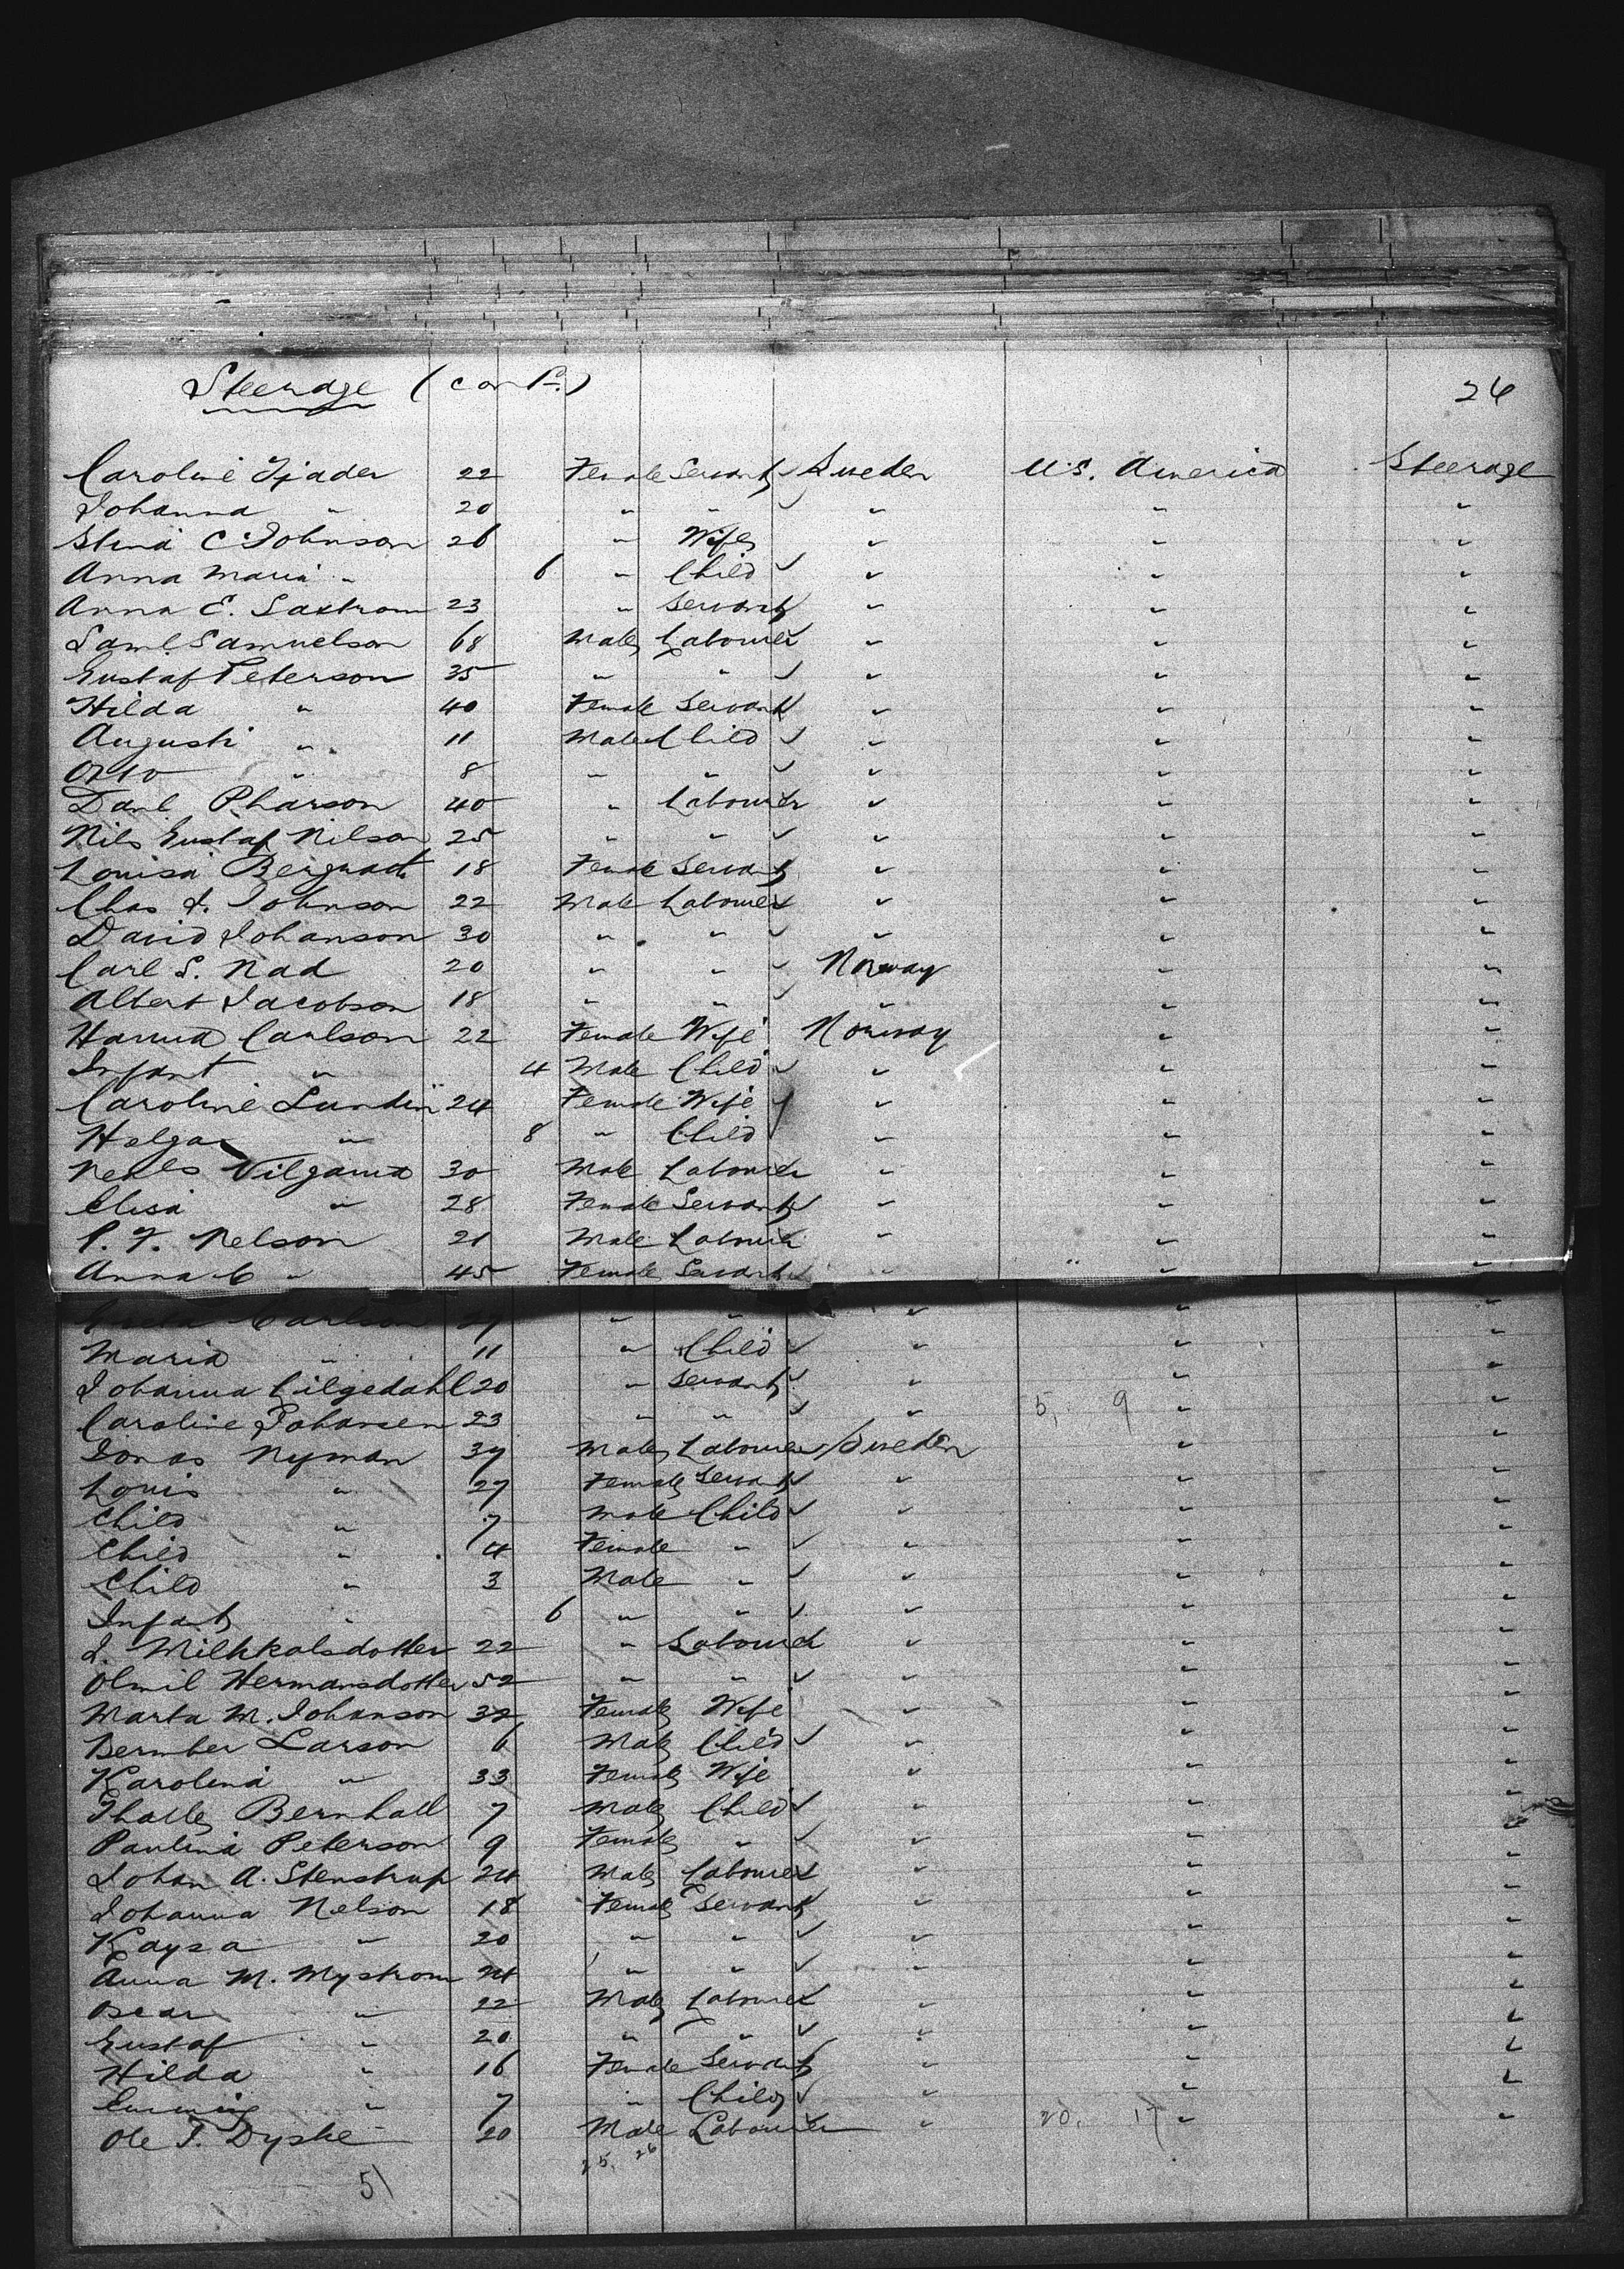 Steerage (cont.) 26
Caroline Tjader 22 Female Servant Sweden U.S. America Steerage
Johanna " 20 " " " " "
Stina C. Johnson 26 " Wife " " "
Anna Maria " 6 " Child " " "
Anna E. Saxtrom 23 " Servant " " "
Saml. Samuelson 68 Male Labourer " " "
Gustaf Peterson 35 " " " " "
Hilda " 40 Female Servant " " "
August " 11 Male Child " " "
Otto " 8 " " " " "
Danl. Pharson 40 " Labourer " " "
Nils Gustaf Nilson 25 " " " " "
Louisa 18 Female Servant " " "
Chas J. Johnson 22 Male Labourer " " "
David Johanson 30 " " " " "
Carl S. Nad 20 " " Norway " "
Albert Jacobson 18 " " " " "
Hanna Carlson 22 Female Wife Norway " "
Infant " 4 Male Child " " "
Caroline Lundin 24 Female Wife " " "
Helga " 8 " Child " " "
30 Male Labourer " " "
Elisa " 28 Female Servant " " "
P. F. Nelson 21 Male Labourer " " "
Anna C " 45 Female Servant " " "
Carlson " " " " "
Maria " 11 " Child " " "
Johanna Lilgedahl 20 " Servant " " "
Caroline Johansen 23 " " " 5, 9 " "
Jonas Nyman 37 Male Labourer Sweden " "
Louis " 27 Female Servant " " "
Child " 7 Male Child " " "
Child " 4 Female " " " "
Child " 3 Male " " " "
Infant " 6 " " " " "
J. Milhkalsdotter 22 " Labourer " " "
Olmil Hermansdotter 52 " " " " "
Marta M. Johanson 32 Female Wife " " "
Bernber Larson 6 Male Child " " "
Karolina " 33 Female Wife " " "
Bernhall 7 Male Child " " "
Paulina Peterson 9 Female " " " "
Johan A. Stenstrup 24 Male Labourer " " "
Johanna Nelson 18 Female Servant " " "
Kaysa " 20 " " " " "
Anna M. Mystrom 24 " " " " "
Oscar " 22 Male Labourer " " "
Gustaf " 20 " " " " "
Hilda " 16 Female Servant " " "
" 7 " Child " " "
Ole T. Dyske 20 Male Labourer " 20, 17 " "
25, 26
51